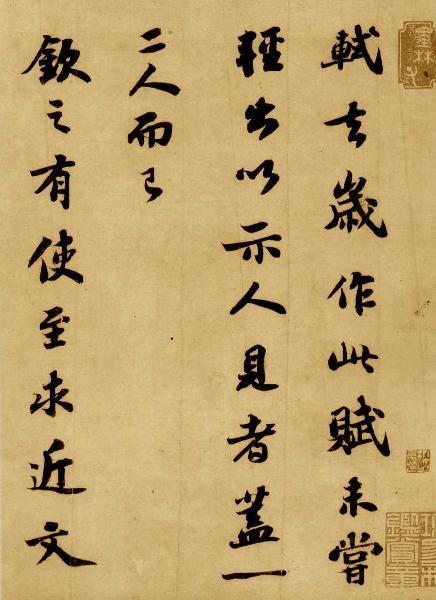 軾去歲作此賦未嘗
輕出以示人見者蓋一
二人而已
欽之有使至求近文
墨林